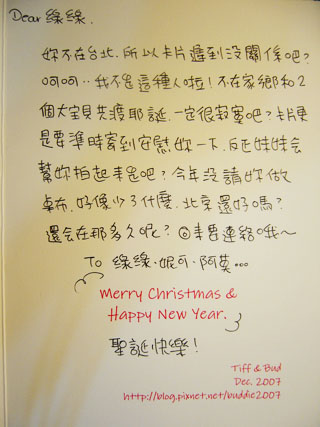 Dear 綠綠.
妳不在台北.所以卡片遲到沒關係吧?
呵呵..我不是這種人啦!不在家鄉和2
個大宝貝共渡耶誕.一定很寂寞吧?卡片更
是要準時寄到安慰妳一下.反正妹妹会
幫妳拍起來是吧?今年沒請妳做
桌布.好像少了什麼.北京還好嗎?
還会在那多久呢?要連絡哦~
To 綠綠.妮可.阿莫...
Merry Christmas &
Happy New Year.
聖誕快樂!
Tiff & Bud
Dec. 2007
http://blog.pixnet.net/buddie2007